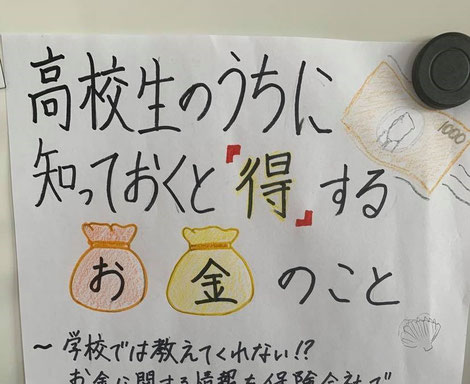 高校生のうちに
知っておくと「得」する
お金のこと
1000
~学校では教えてくれない!?
お金に関する情報を保険会社で